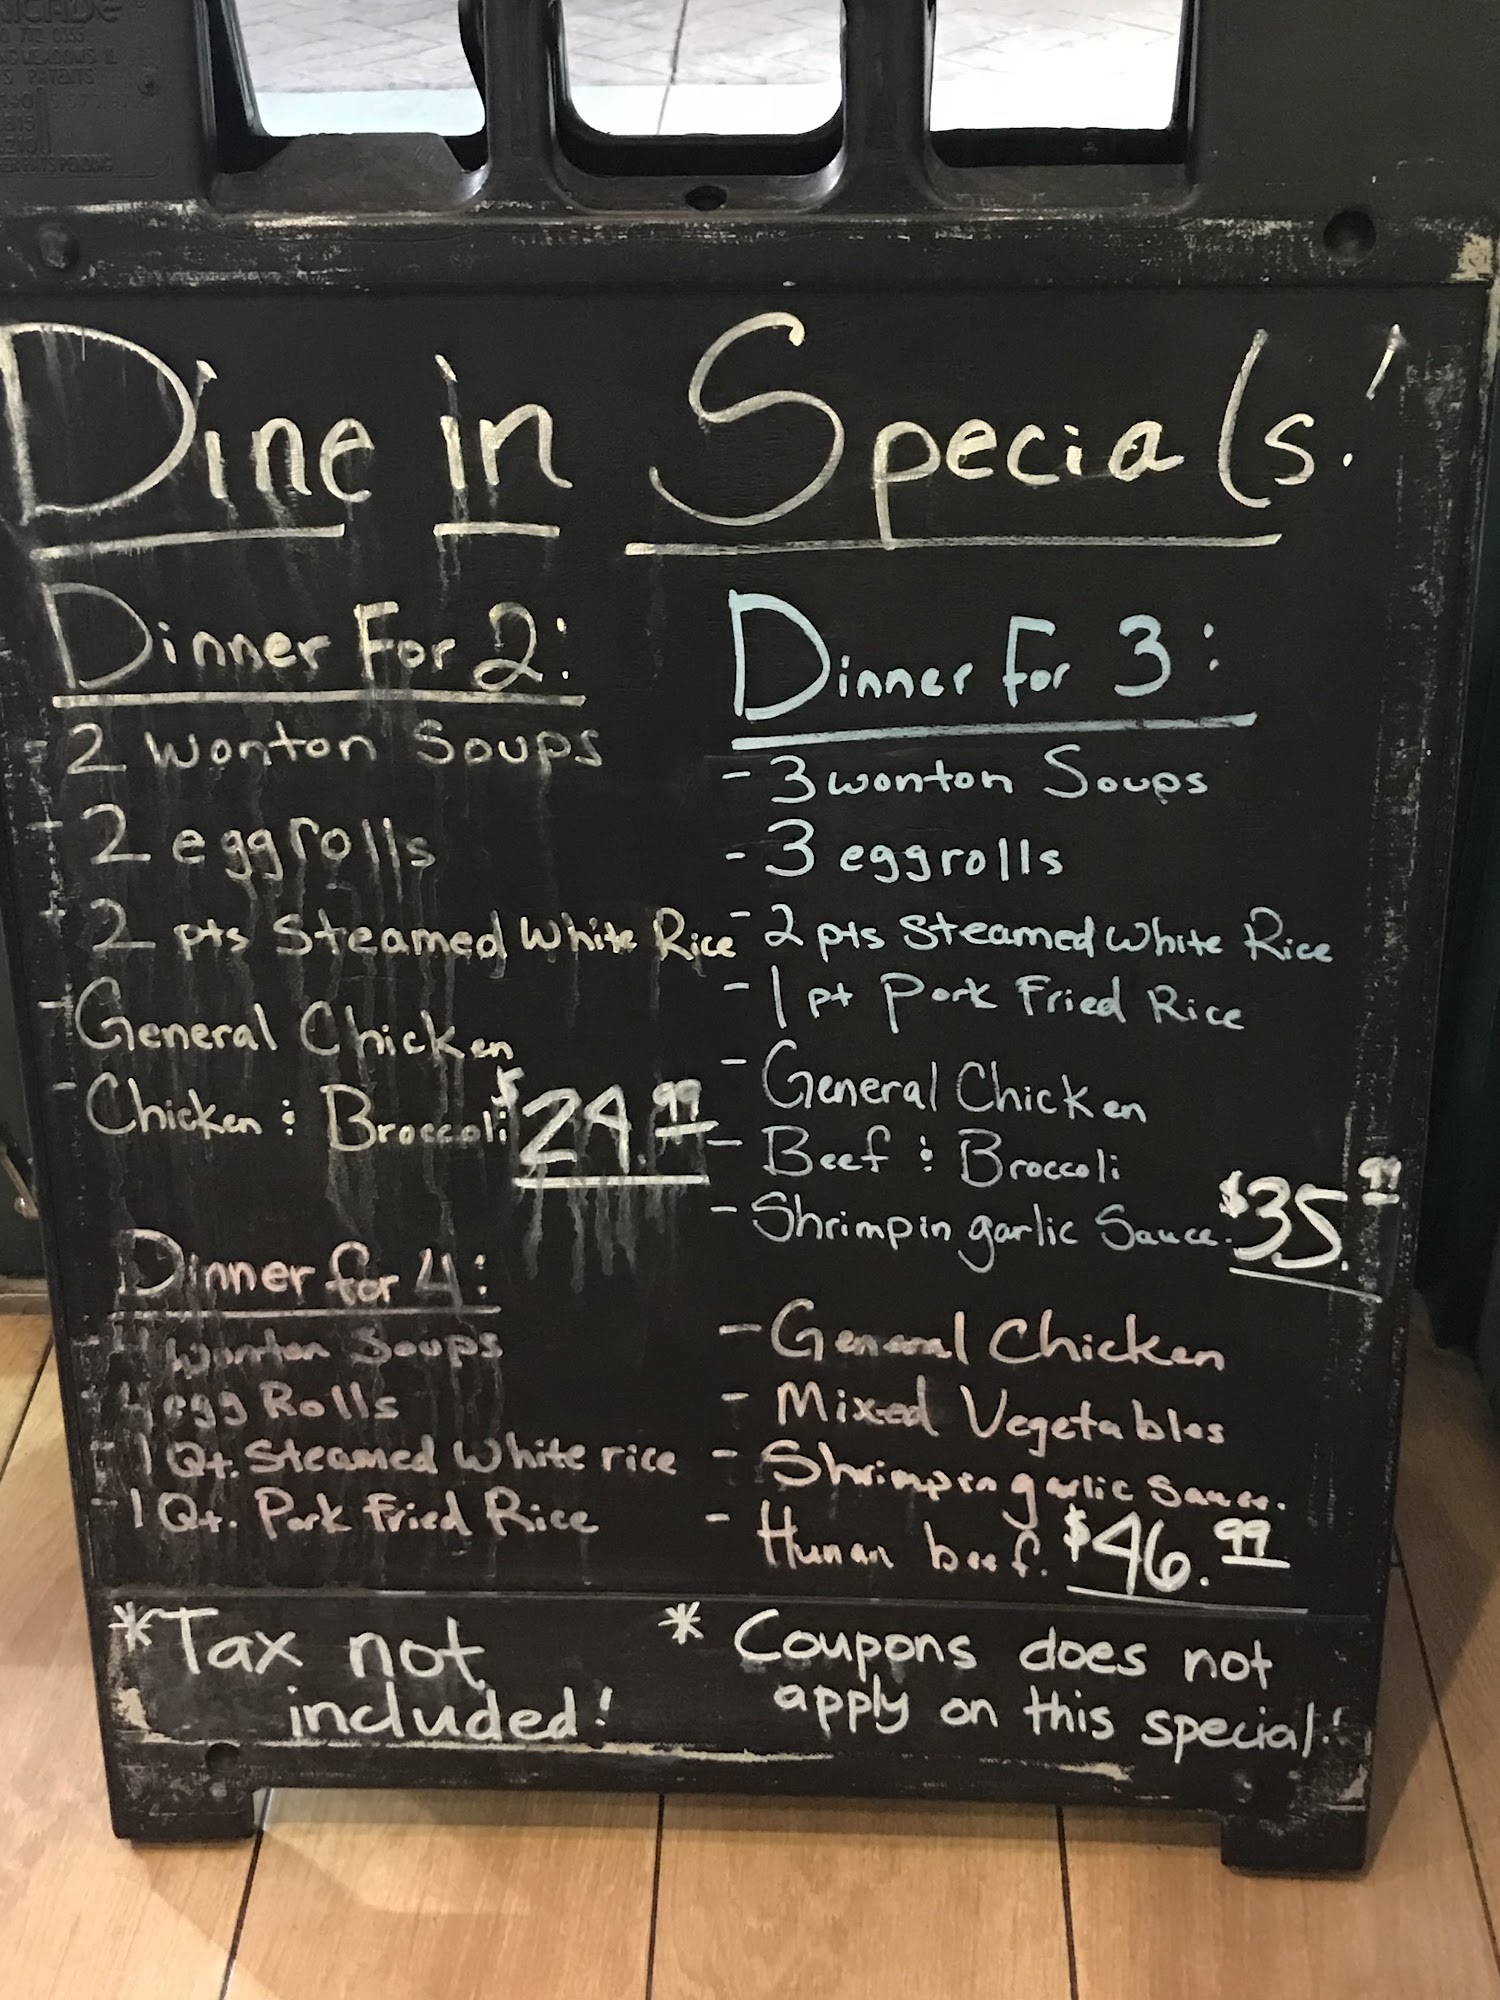 Dine in Specials!
Dinner For 2:
- 2 wonton Soups
- 2 eggrolls
- 2 pts Steamed White Rice
- General Chicken
- Chicken & Broccoli $24.99
Dinner for 3:
- 3 wonton Soups
- 3 eggrolls
- 2 pts Steamed White Rice
- 1 pt Pork Fried Rice
- General Chicken
- Beef & Broccoli
- Shrimp in garlic Sauce. $35.99
Dinner for 4:
- 4 Wonton Soups
- 4 egg Rolls
- 1 Qt. Steamed White rice
- 1 Qt. Pork Fried Rice
- General Chicken
- Mixed Vegetables
- Shrimp in garlic Sauce.
- Hunan beef. $46.99
*Tax not
included!
* Coupons does not
apply on this special!
PATENTS